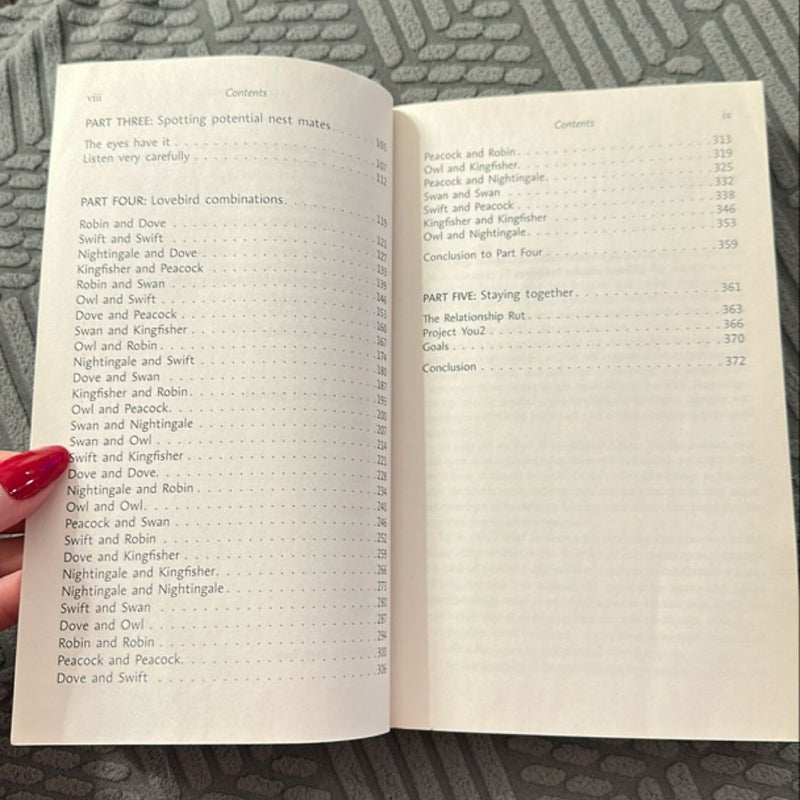 viii
Contents
PART THREE: Spotting potential nest mates 105
The eyes have it 107
Listen very carefully 112
PART FOUR: Lovebird combinations 119
Robin and Dove 121
Swift and Swift 127
Nightingale and Dove 133
Kingfisher and Peacock 139
Robin and Swan 146
Owl and Swift 153
Dove and Peacock 160
Swan and Kingfisher 167
Owl and Robin 174
Nightingale and Swift 180
Dove and Swan 187
Kingfisher and Robin 193
Owl and Peacock 200
Swan and Nightingale 207
Swan and Owl 214
Swift and Kingfisher 221
Dove and Dove 228
Nightingale and Robin 234
Owl and Owl 240
Peacock and Swan 246
Swift and Robin 252
Dove and Kingfisher 259
Nightingale and Kingfisher 266
Nightingale and Nightingale 273
Swift and Swan 280
Dove and Owl 287
Robin and Robin 294
Peacock and Peacock 300
Dove and Swift 306
Contents
ix
Peacock and Robin 313
Owl and Kingfisher 319
Peacock and Nightingale 325
Swan and Swan 332
Swift and Peacock 338
Kingfisher and Kingfisher 346
Owl and Nightingale 353
Conclusion to Part Four 359
PART FIVE: Staying together 361
The Relationship Rut 363
Project You2 366
Goals 370
Conclusion 372